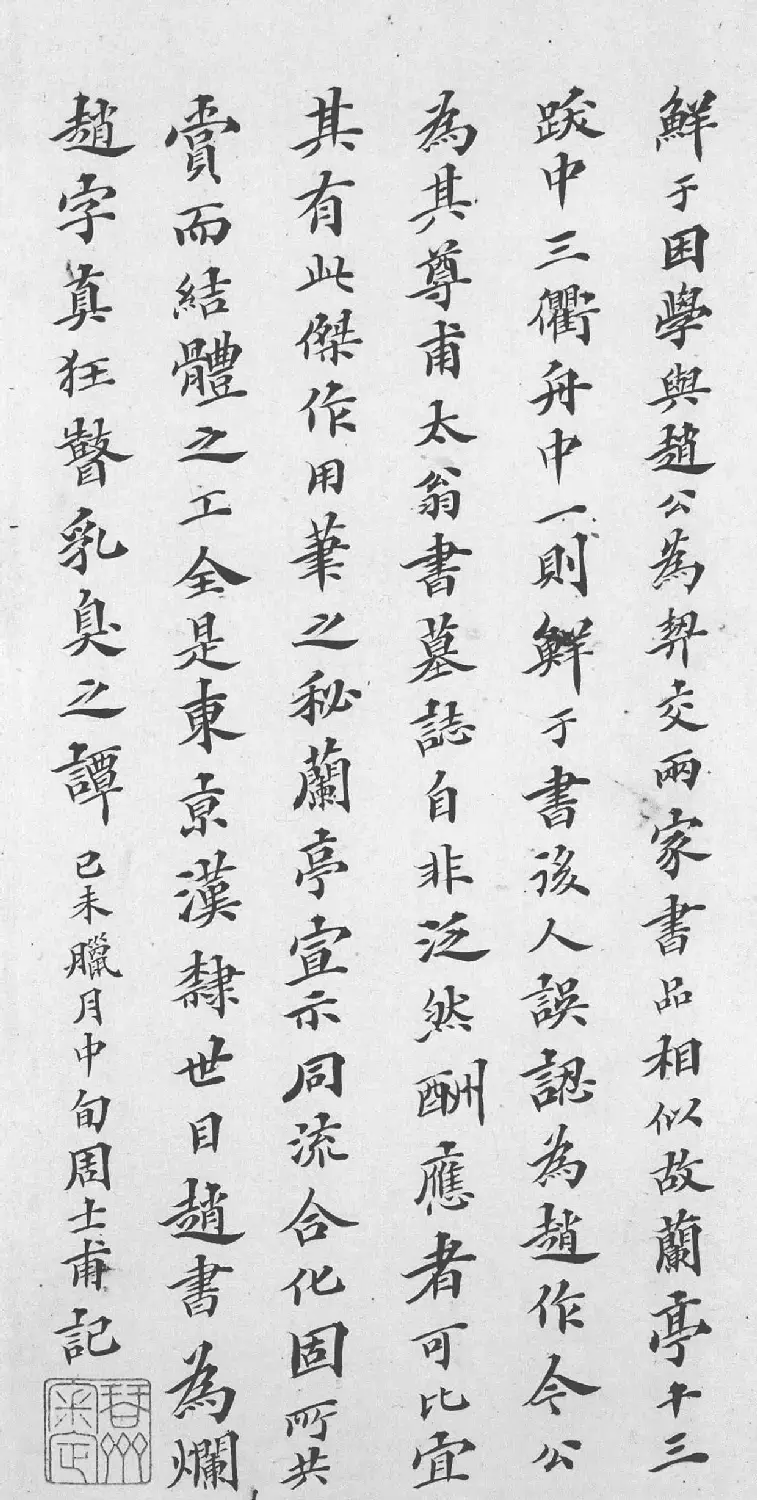 鮮于困學與趙公為契交兩家書品相似故蘭亭十三
跋中三衢舟中一則鮮于書後人誤認為趙作今公
為其尊甫太翁書墓誌自非泛然酬應者可比宜
其有此傑作用筆之秘蘭亭宣示同流合化固所共
賞而結體之工全是東京漢隸世目趙書為爛
趙字真狂瞽乳臭之譚己未臘月中旬周士甫記